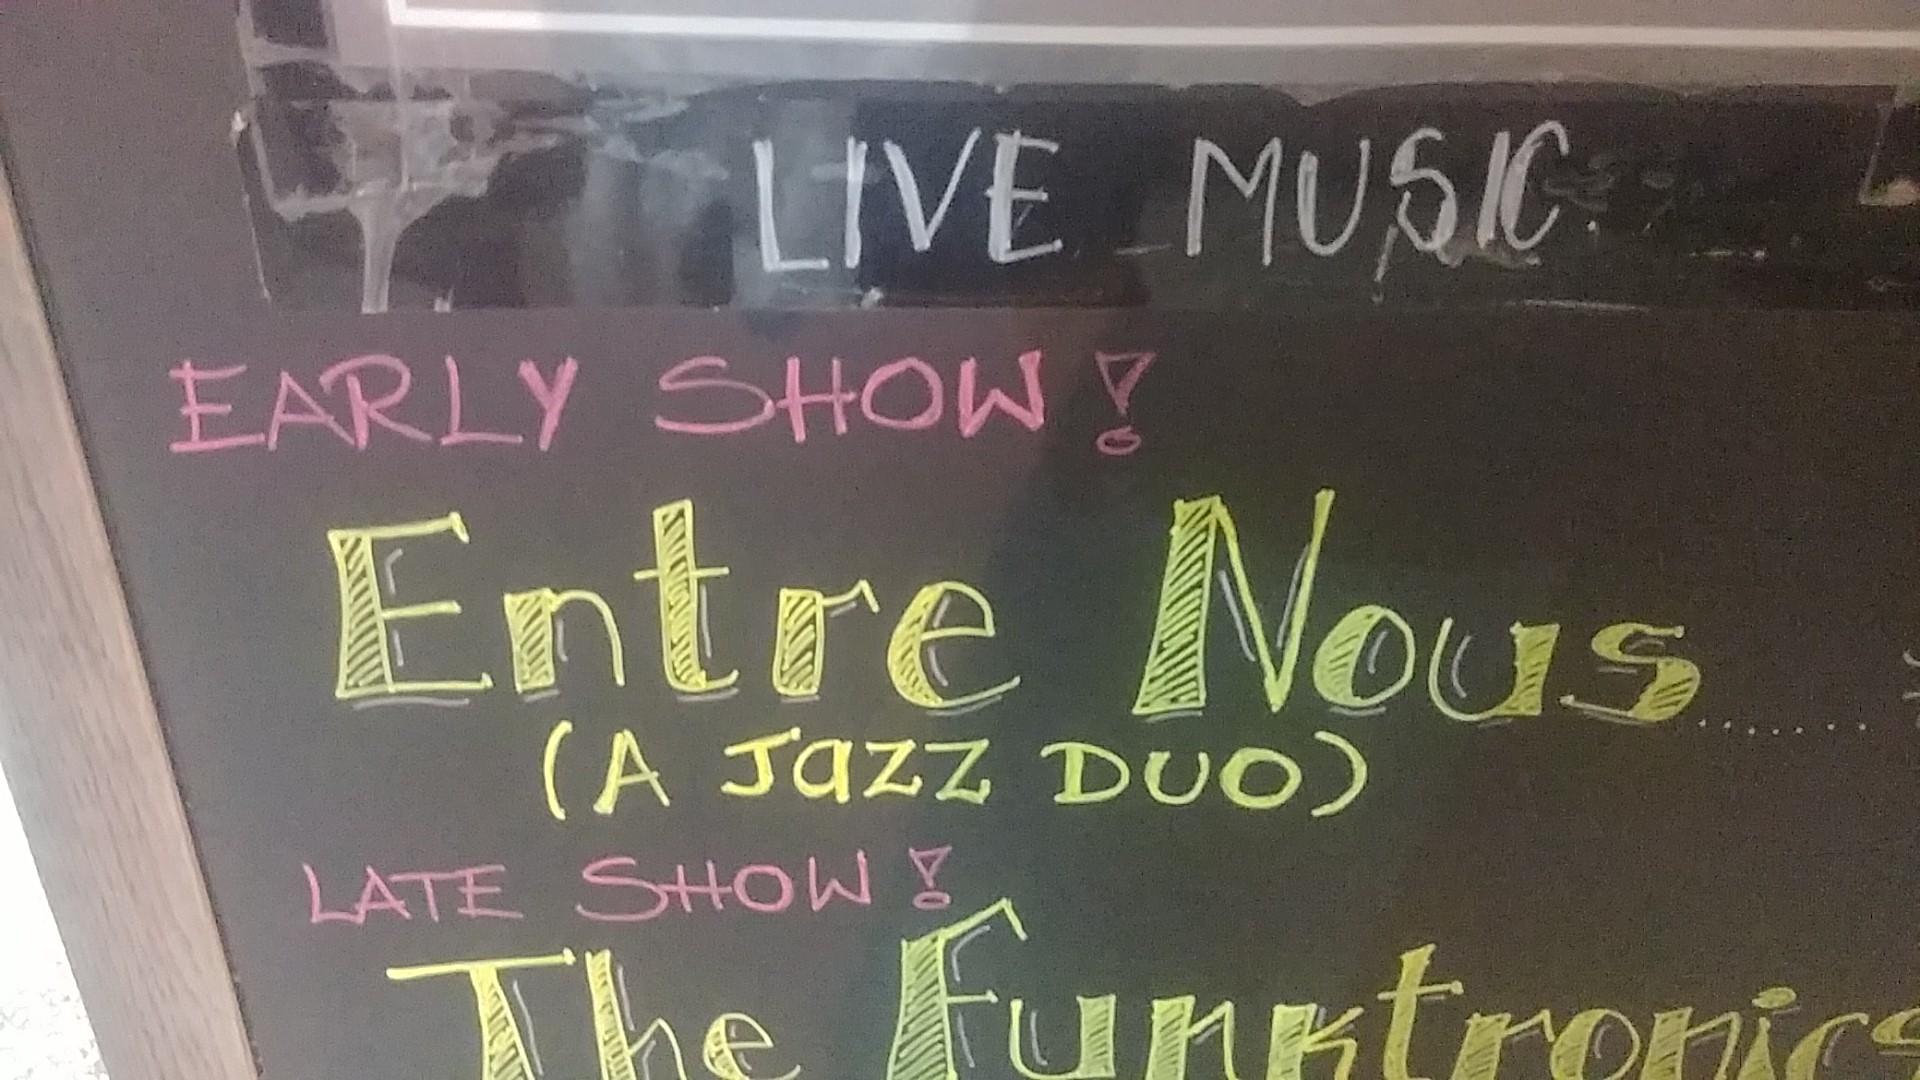 LIVE MUSIC
EARLY SHOW!
Entre Nous.......
(A JAZZ DUO)
LATE SHOW!
The Funktronics